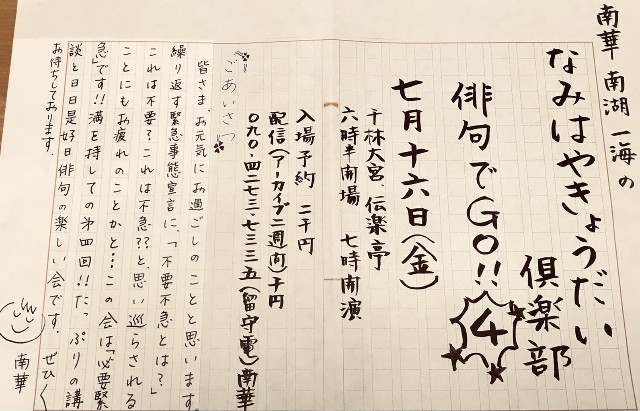 南華 南湖 一海の
なみはやきょうだい
倶楽部
俳句でGO!! 4
七月十六日(金)
千林大宮、伝楽亭
六時半開場 七時開演
入場予約 二千円
配信(アーカイブ二週間)千円
090・4273・7335(留守電)南華
ごあいさつ
皆さま、お元気にお過ごしのことと思います。
繰り返す緊急事態宣言に、「不要不急とは?」
これは不要?これは不急??と、思い巡らされる
ことにもお疲れのことかと…この会は「必要緊
急」です!!満を持しての第四回!!たっぷりの講
談と日日是好日俳句の楽しい会です。ぜひ〱
お待ちしております。
南華